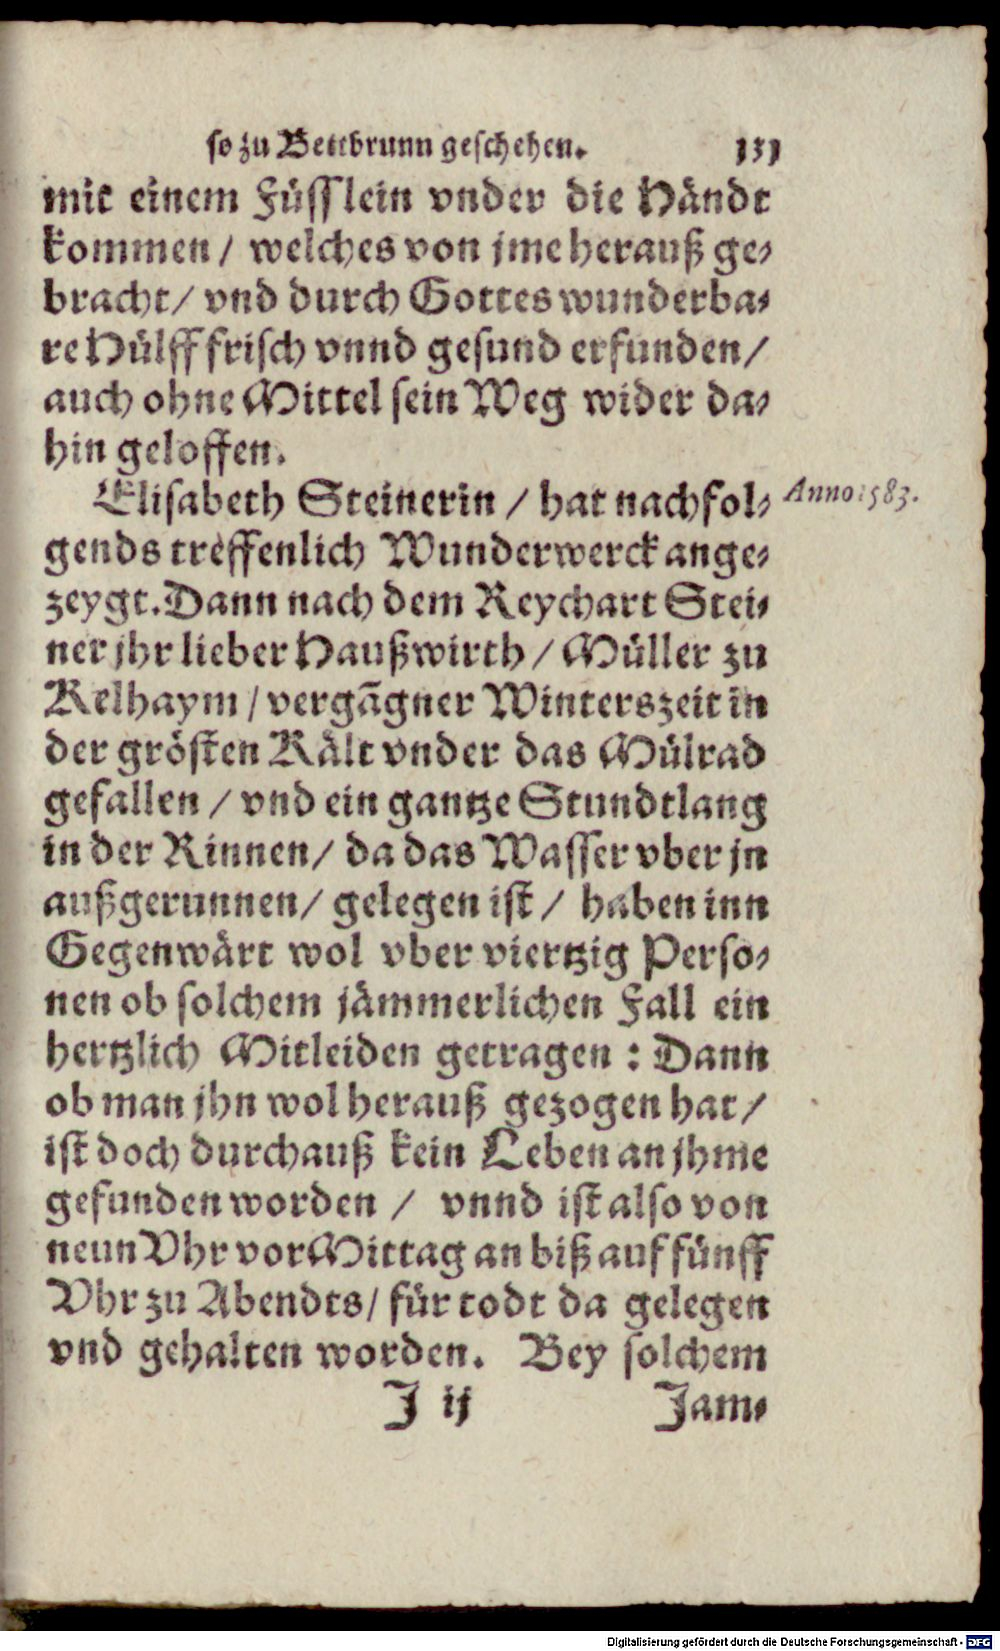 so zu Bettbrunn geschehen. 131
mit einem Füsslein vnder die Händt
kommen / welches von jme herauß ge-
bracht / vnd durch Gottes wunderba-
re Hülff frisch vnnd gesund erfunden /
auch ohne Mittel sein Weg wider da-
hin geloffen.
Elisabeth Steinerin / hat nachfol-
Anno 1583.
gends treffenlich Wunderwerck ange-
zeygt. Dann nach dem Reychart Stei-
ner jhr lieber Haußwirth / Müller zu
Kelhaym / vergãgner Winterszeit in
der grösten Kält vnder das Mülrad
gefallen / vnd ein gantze Stundtlang
in der Rinnen / da das Wasser vber jn
außgerunnen / gelegen ist / haben inn
Gegenwärt wol vber viertzig Perso-
nen ob solchem jämmerlichen Fall ein
hertzlich Mitleiden getragen : Dann
ob man jhn wol herauß gezogen hat /
ist doch durchauß kein Leben an jhme
gefunden worden / vnnd ist also von
neun Vhr vor Mittag an biß auf fünff
Vhr zu Abendts / für todt da gelegen
vnd gehalten worden. Bey solchem
J ij Jam-
Digitalisierung gefördert durch die Deutsche Forschungsgemeinschaft - DFG